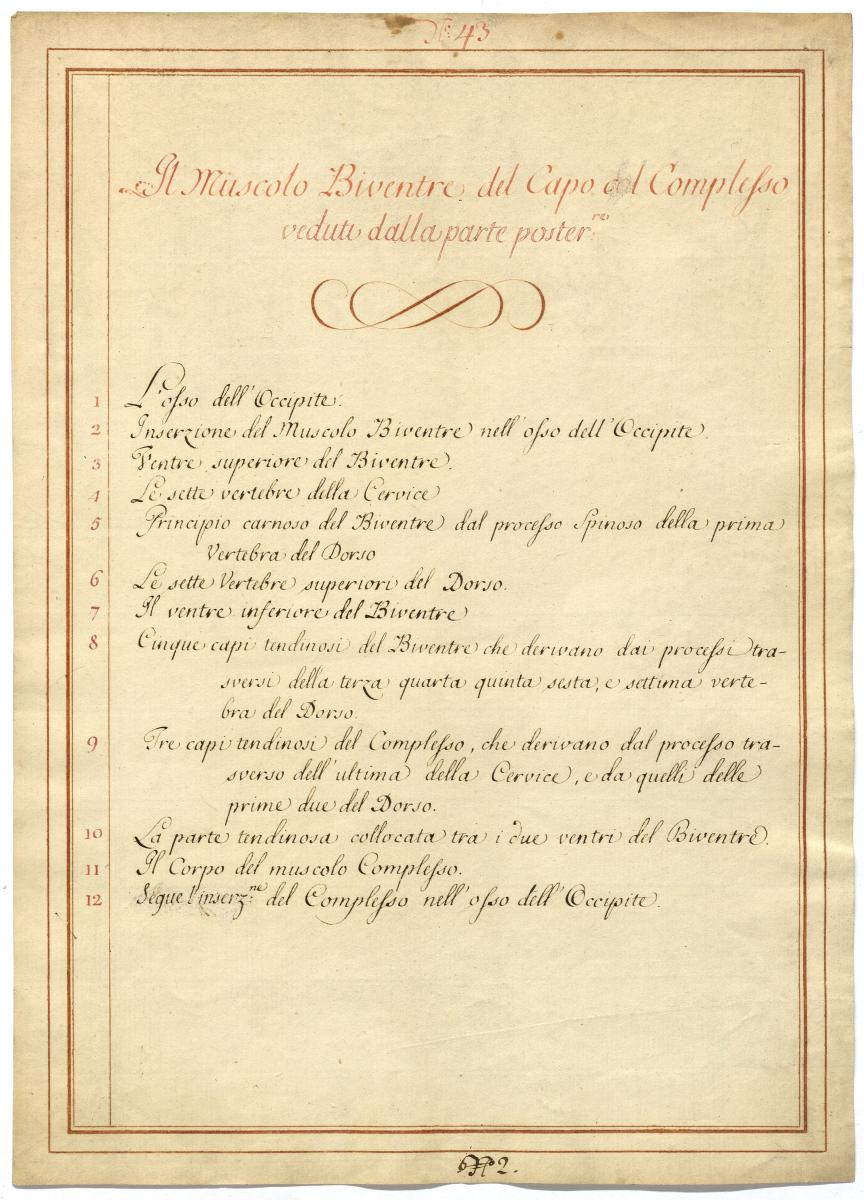 N.º 43
Il Muscolo Biventre del Capo, col Complesso
veduti dalla parte poster.re
1 L'osso dell'Occipite.
2 Inserzione del Muscolo Biventre nell'osso dell'Occipite.
3 Ventre superiore del Biventre.
4 Le sette vertebre della Cervice
5 Principio carnoso del Biventre dal processo Spinoso della prima
Vertebra del Dorso
6 Le sette Vertebre superiori del Dorso.
7 Il ventre inferiore del Biventre
8 Cinque capi tendinosi del Biventre che derivano dai processi tra-
sversi della terza quarta quinta sesta, e settima verte-
bra del Dorso.
9 Tre capi tendinosi del Complesso, che derivano dal processo tra-
sverso dell'ultima della Cervice, e da quelli delle
prime due del Dorso.
10 La parte tendinosa collocata tra i due ventri del Biventre.
11 Il Corpo del muscolo Complesso.
12 Segue l'inserz.ne del Complesso nell'osso dell'Occipite.
2.